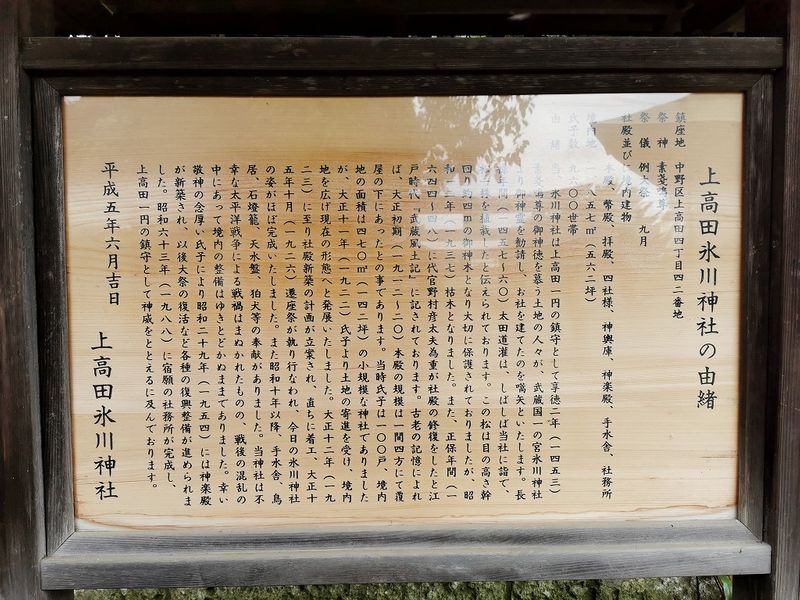 上高田氷川神社の由緒
鎮座地 中野区上高田四丁目四二番地
祭神 素戔嗚尊
祭儀 例大祭 九月
社殿並び 境内建物
殿、幣殿、拝殿、四社様、神輿庫、神楽殿、手水舎、社務所
境内地 八五七㎡(五六二坪)
氏子数 九〇〇世帯
由緒 当 氷川神社は上高田一円の鎮守として享徳二年(一四五三)
素戔嗚尊の御神徳を慕う土地の人々が、武蔵国一の宮氷川神社
り御神霊を勧請し、お社を建てたのを嚆矢といたします。長
年間(一四五七〜六〇)太田道灌は、しばしば当社に詣で、
松一様を植栽したと伝えられております。この松は目の高さ幹
回り約四mの御神木となり大切に保護されておりましたが、昭
和十二年(一九三七)枯木となりました。また、正保年間(一
六四四〜四八)に代官野村彦太夫為重が社殿の修復をしたと江
戸時代「武蔵風土記」に記されております。古老の記憶によれ
ば、大正初期(一九一二〜二〇)本殿の規模は一間四方にて覆
屋の下にあったとの事であります。当時氏子は一〇〇戸、境内
地の面積は四七〇㎡(一四二坪)の小規模な神社でありました
が、大正十一年(一九二二)氏子より土地の寄進を受け、境内
地を広げ現在の形態へと発展いたしました。大正十二年(一九
二三)に至り社殿新築の計画が立案され、直ちに着工、大正十
五年十月(一九二六)遷座祭が執り行なわれ、今日の氷川神社
の姿がほぼ完成いたしました。また昭和十年以降、手水舎、鳥
居、石燈籠、天水盤、狛犬等の奉献がありました。当神社は不
幸な太平洋戦争による戦禍はまぬかれたものの、戦後の混乱の
中にあって境内の整備はゆきとどかぬままでありました。幸い
敬神の念厚い氏子により昭和二十九年(一九五四)には神楽殿
が新築され、以後大祭の復活など各種の復興整備が進められま
した。昭和六十三年(一九八八)に宿願の社務所が完成し、
上高田一円の鎮守として神威をととえるに及んでおります。
平成五年六月吉日 上高田氷川神社